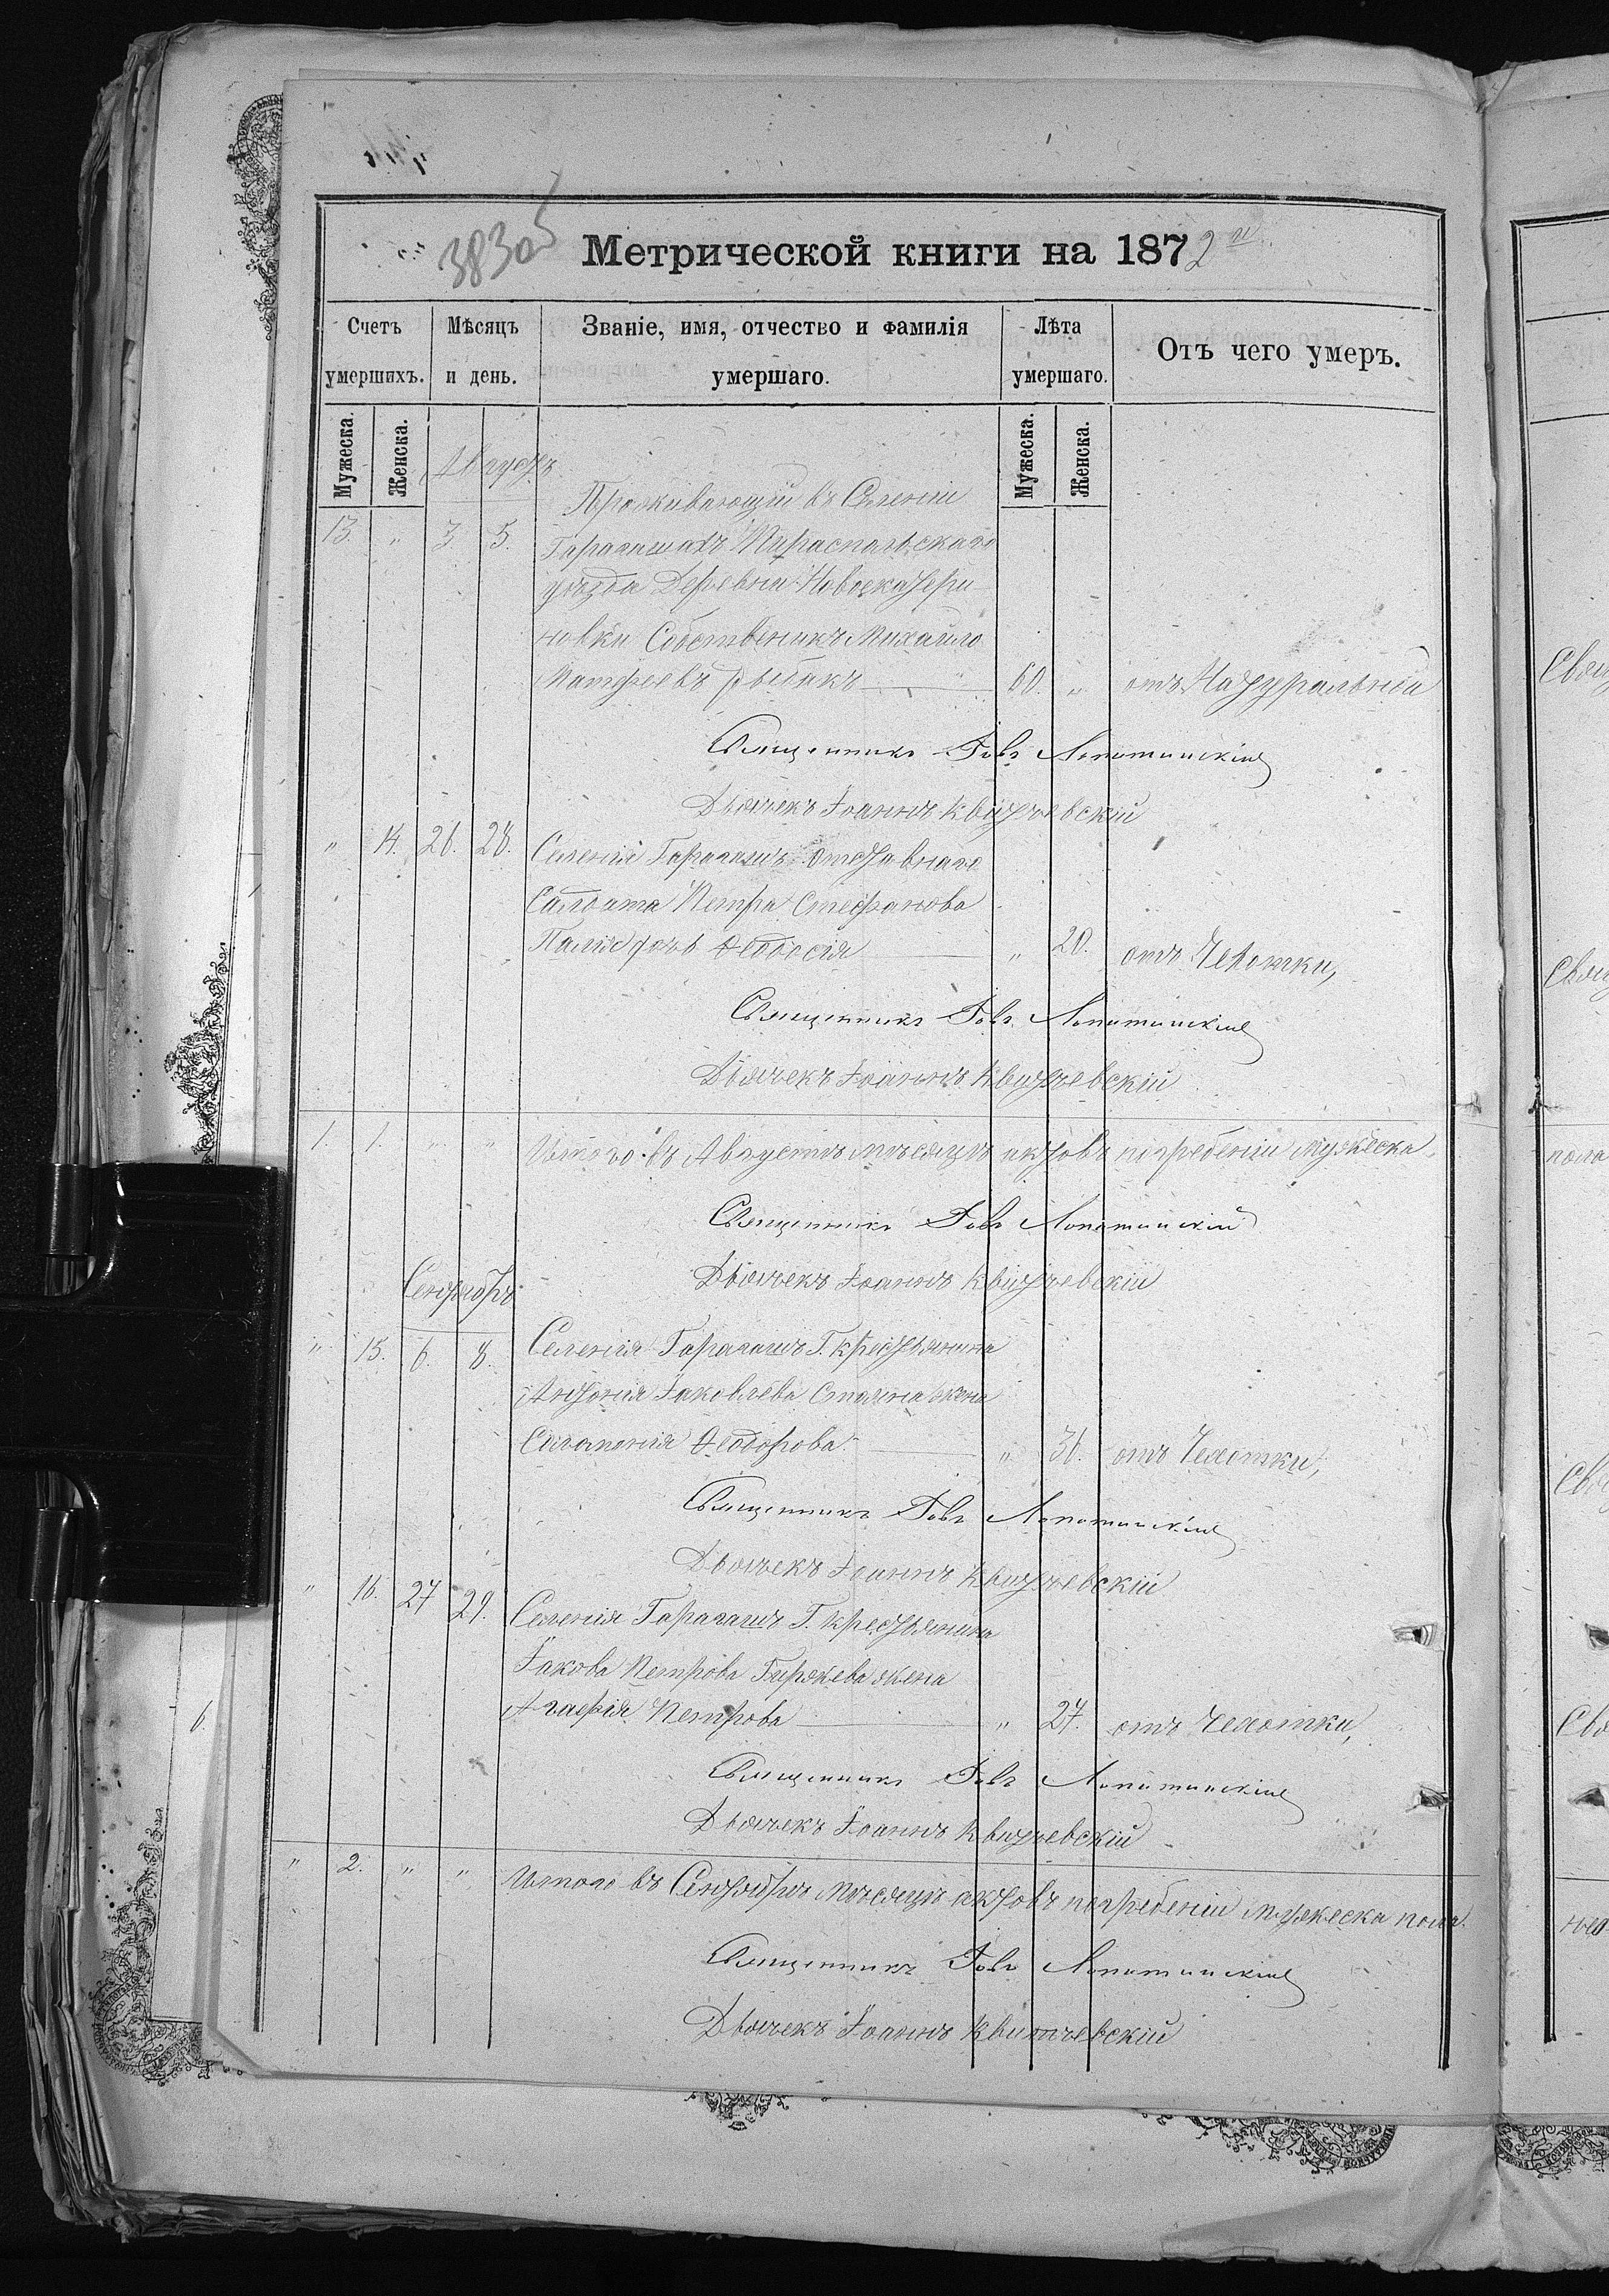 383об
Метрической книги на 1872 й
Счетъ умершихъ.
Мѣсяцъ и день.
Званіе, имя, отчество и фамилія умершаго.
Лѣта умершаго.
Отъ чего умеръ.
Мужеска. Женска. Мужеска. Женска.
Августъ
Проживающій въ Селеніи
13. " 3 5. Гарагашахъ Тираспольскаго
уѣзда Деревни Новоекатери
новки Собственикъ Михайло
Матфеевъ Рыбакъ 60. " отъ Натуральной
Священникъ Іовъ Лопатинскій
Дьячекъ Іоаннъ Квитчевскій
" 14. 26. 28. Селенія Гарагашъ отставнаго
Салдата Петра Стефанова
Палія дочь Ѳеодосія " 20. отъ Чехотки,
Священникъ Іовъ Лопатинскій
Дьячекъ Іоаннъ Квитчевскій
1. 1. " " Итого въ Августѣ мѣсяцѣ актовъ погребеніи мужеска
Священникъ Іовъ Лопатинскій
Дьячекъ Іоаннъ Квитчевскій
Сентябрь
" 15. 6. 8. Селенія Гарагашъ Г. крестьянина
Антонія Іаковлева Стояна жена
Соломонія Ѳеодорова " 36. отъ Чехотки,
Священникъ Іовъ Лопатинскій
Дьячекъ Іоаннъ Квитчевскій
" 16. 27 29. Селенія Гарагашъ Г. крестьянина
Іакова Петрова Гиржева жена
Агафія Петрова " 27. отъ Чехотки,
Священникъ Іовъ Лопатинскій
Дьячекъ Іоаннъ Квитчевскій
" 2. " " Итого въ Сентябрѣ мѣсяцѣ актовъ погребеніи мужеска пола.
Священникъ Іовъ Лопатинскій
Дьячекъ Іоаннъ Квитчевскій